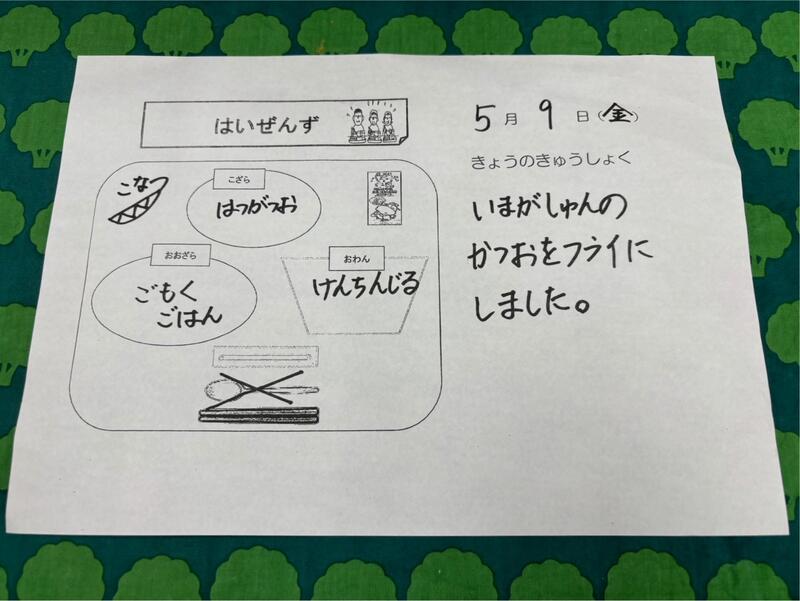 はいぜんず
5月9日(金)
きょうのきゅうしょく
いまがしゅんの
かつおをフライに
しました。
こなつ
こざら
はつがつお
おおざら
ごもく
ごはん
おわん
けんちんじる